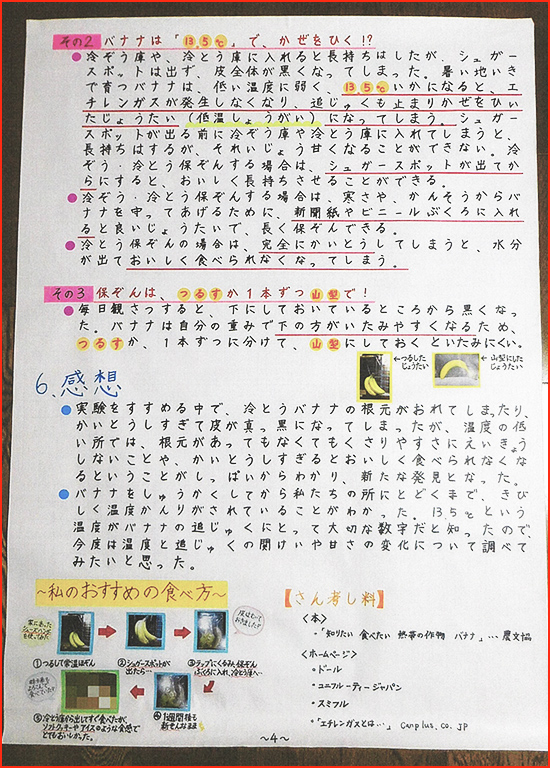 その2 バナナは「13.5℃」で、かぜをひく!?
●冷ぞう庫や、冷とう庫に入れると長持ちはしたが、シュガー
スポットは出ず、皮全体が黒くなってしまった。暑い地いき
で育つバナナは、低い温度に弱く、13.5℃いかになると、エ
チレンガスが発生しなくなり、追じゅくも止まりかぜをひい
たじょうたい(低温しょうがい)になってしまう。シュガー
スポットが出る前に冷ぞう庫や冷とう庫に入れてしまうと、
長持ちはするが、それいじょう甘くなることができない。冷
ぞう・冷とう保ぞんする場合は、シュガースポットが出てか
らにすると、おいしく長持ちさせることができる。
●冷ぞう・冷とう保ぞんする場合は、寒さや、かんそうからバ
ナナを守ってあげるために、新聞紙やビニールぶくろに入れ
ると良いじょうたいで、長く保ぞんできる。
●冷とう保ぞんの場合は、完全にかいとうしてしまうと、水分
が出ておいしく食べられなくなってしまう。
その3 保ぞんは、つるすか1本ずつ山型で!
●毎日観さつすると、下にしておいているところから黒くなっ
た。バナナは自分の重みで下の方がいたみやすくなるため、
つるすか、1本ずつに分けて、山型にしておくといたみにくい。
←つるした
じょうたい
←山型にした
じょうたい
6.感想
●実験をすすめる中で、冷とうバナナの根元がおれてしまったり、
かいとうしすぎて皮が真っ黒になってしまったが、温度の低
い所では、根元があってもなくてもくさりやすさにえいきょう
しないことや、かいとうしすぎるとおいしく食べられなくな
るということがしっぱいからわかり、新たな発見となった。
●バナナをしゅうかくしてから私たちの所にとどくまで、きび
しく温度かんりがされていることがわかった。13.5℃という
温度がバナナの追じゅくにとって大切な数字だと知ったので、
今度は温度と追じゅくの関けいや甘さの変化について調べて
みたいと思った。
～私のおすすめの食べ方～
①つるして常温ほぞん
②シュガースポットが
出たら…
③ラップにくるみ、保ぞん
ぶくろに入れ、冷とう庫へ…
④1週間後も
新せんなまま
⑤冷とう庫から出してすぐ食べたが、
ソフトクッキーやアイスのような食感で
とてもおいしかった。
【さん考し料】
<本>
・「知りたい 食べたい 熱帯の作物 バナナ」…農文協
<ホームページ>
・ドール
・ユニフルーティージャパン
・スミフル
・「エチレンガスとは…」 Canplus.co.jp
～4～